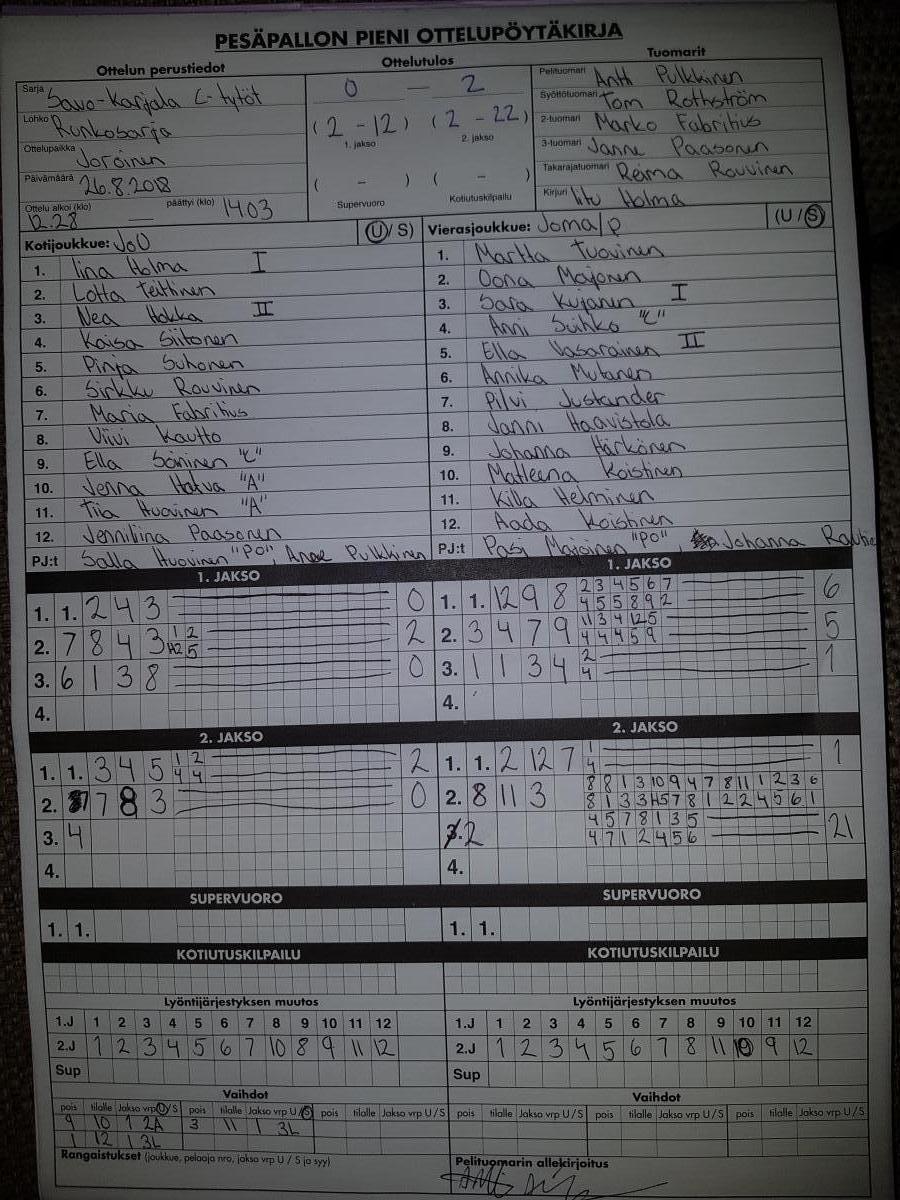 PESÄPALLON PIENI OTTELUPÖYTÄKIRJA
Ottelun perustiedot
Sarja Savo-Karjala C-tytöt
Lohko Runkosarja
Ottelupaikka Joroinen
Päivämäärä 26.8.2018
Ottelu alkoi (klo) 12.28 — päättyi (klo) 1403
Ottelutulos
0 — 2
(2 - 12) (2 - 22)
1. jakso 2. jakso
( - ) ( - )
Supervuoro Kotiutuskilpailu
Tuomarit
Pelituomari Antti Pulkkinen
Syöttötuomari Tom Rothström
2-tuomari Marko Fabritius
3-tuomari Janne Paasonen
Takarajatuomari Reima Rouvinen
Kirjuri Iitu Holma
Kotijoukkue: JoO (U/S)
1. Iina Holma I
2. Lotta Teittinen
3. Nea Hokka II
4. Kaisa Siitonen
5. Pinja Suhonen
6. Sirkku Rouvinen
7. Maria Fabritius
8. Viivi Kautto
9. Ella Soininen "C"
10. Jenna Hatva "A"
11. Tiia Huovinen "A"
12. Jenniliina Paasonen
PJ:t Salla Huovinen "PO", Anne Pulkkinen
Vierasjoukkue: Joma/p (U/S)
1. Martta Tuovinen
2. Oona Majonen
3. Sara Kujanen I
4. Anni Suihko "C"
5. Ella Vasarainen II
6. Annika Mutanen
7. Pilvi Justander
8. Janni Haavistola
9. Johanna Härkönen
10. Matleena Koistinen
11. Killa Helminen
12. Aada Koistinen
PJ:t Pasi Majoinen "PO", Johanna
1. JAKSO
1. 1. 2 4 3 0
2. 7 8 4 3 1 2 2
5
3. 6 1 3 8 0
4.
1. JAKSO
1. 1. 12 9 8 2 3 4 5 6 7 6
4 5 5 8 9 2
2. 3 4 7 9 11 3 4 12 5 5
4 4 4 5 9
3. 1 1 3 4 2 1
4
4.
2. JAKSO
1. 1. 3 4 5 1 2 2
4 4
2. 7 8 3 0
3. 4
4.
2. JAKSO
1. 1. 2 12 7 1 1
4
2. 8 11 3 8 8 1 3 10 9 4 7 8 11 1 2 3 6
8 1 3 3 4 5 7 8 1 2 2 4 5 6 1
2 4 5 7 8 1 3 5 21
4 7 1 2 4 5 6
4.
SUPERVUORO
1. 1.
SUPERVUORO
1. 1.
KOTIUTUSKILPAILU
KOTIUTUSKILPAILU
Lyöntijärjestyksen muutos
1.J 1 2 3 4 5 6 7 8 9 10 11 12
2.J 1 2 3 4 5 6 7 10 8 9 11 12
Sup
Lyöntijärjestyksen muutos
1.J 1 2 3 4 5 6 7 8 9 10 11 12
2.J 1 2 3 4 5 6 7 8 11 10 9 12
Sup
Vaihdot
pois tilalle Jakso vrp U/S pois tilalle Jakso vrp U/S pois tilalle Jakso vrp U/S
9 10 1 2A 3 11 1 3L
1 12 1 3L
Vaihdot
pois tilalle Jakso vrp U/S pois tilalle Jakso vrp U/S pois tilalle Jakso vrp U/S
Rangaistukset (joukkue, pelaaja nro, jakso vrp U / S ja syy)
Pelituomarin allekirjoitus